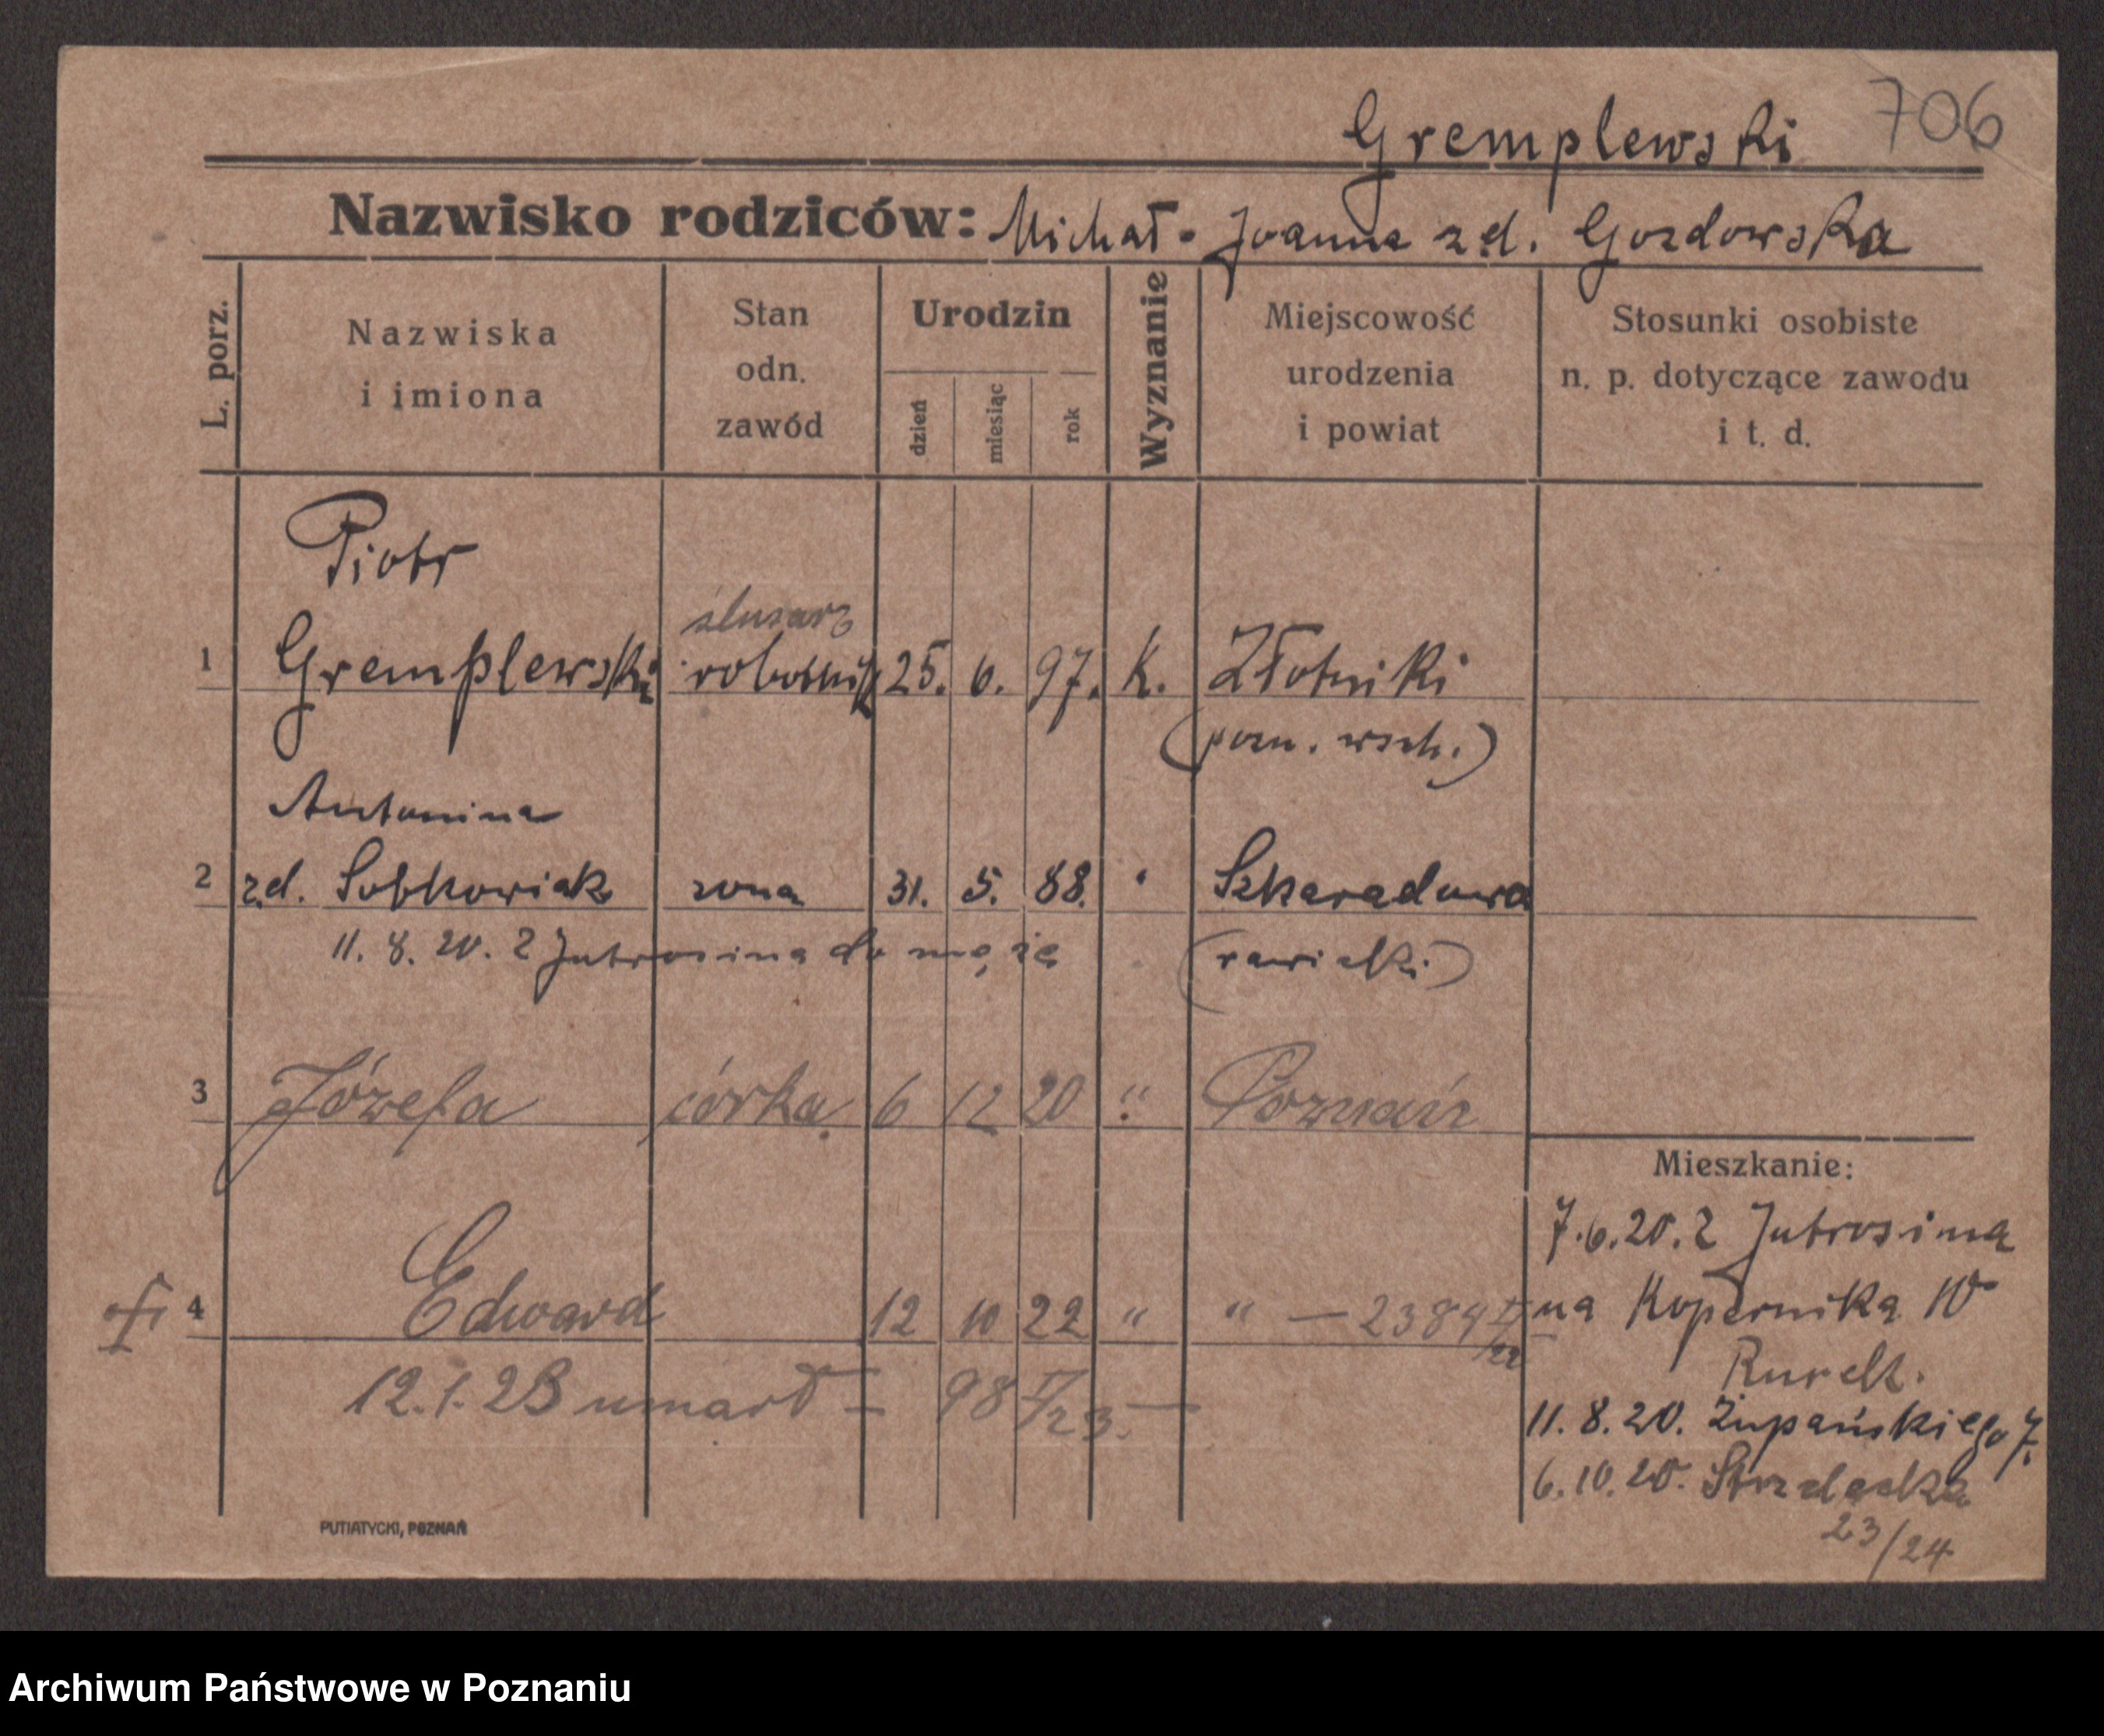 Gremplewski 706
Nazwisko rodziców: Michał - Joanna zd. Gozdowska
L. porz.
Nazwiska i imiona
Stan odn. zawód
Urodzin
dzień miesiąc rok
Wyznanie
Miejscowość urodzenia i powiat
Stosunki osobiste n. p. dotyczące zawodu i t. d.
Piotr
ślusarz
1 Gremplewski robotnik 25. 6. 97. K. Złotniki
(pozn. wsch.)
Antonina
2 zd. Sobkowiak żona 31. 5. 88. " Szkaradowa
11. 8. 20. z Jutrosina do męża (rawicki)
3 Józefa córka 6 12 20 " Poznań
4 Edward 12 10 22 " " — 2384
22
12.1.23 umarł — 98 I/23. —
Mieszkanie:
7.6.20. z Jutrosina
na Kopernika 10
11. 8. 20. Żupańskiego 7.
6. 10. 20. Strzelecka
23/24
PUTIATYCKI, POZNAŃ
Archiwum Państwowe w Poznaniu